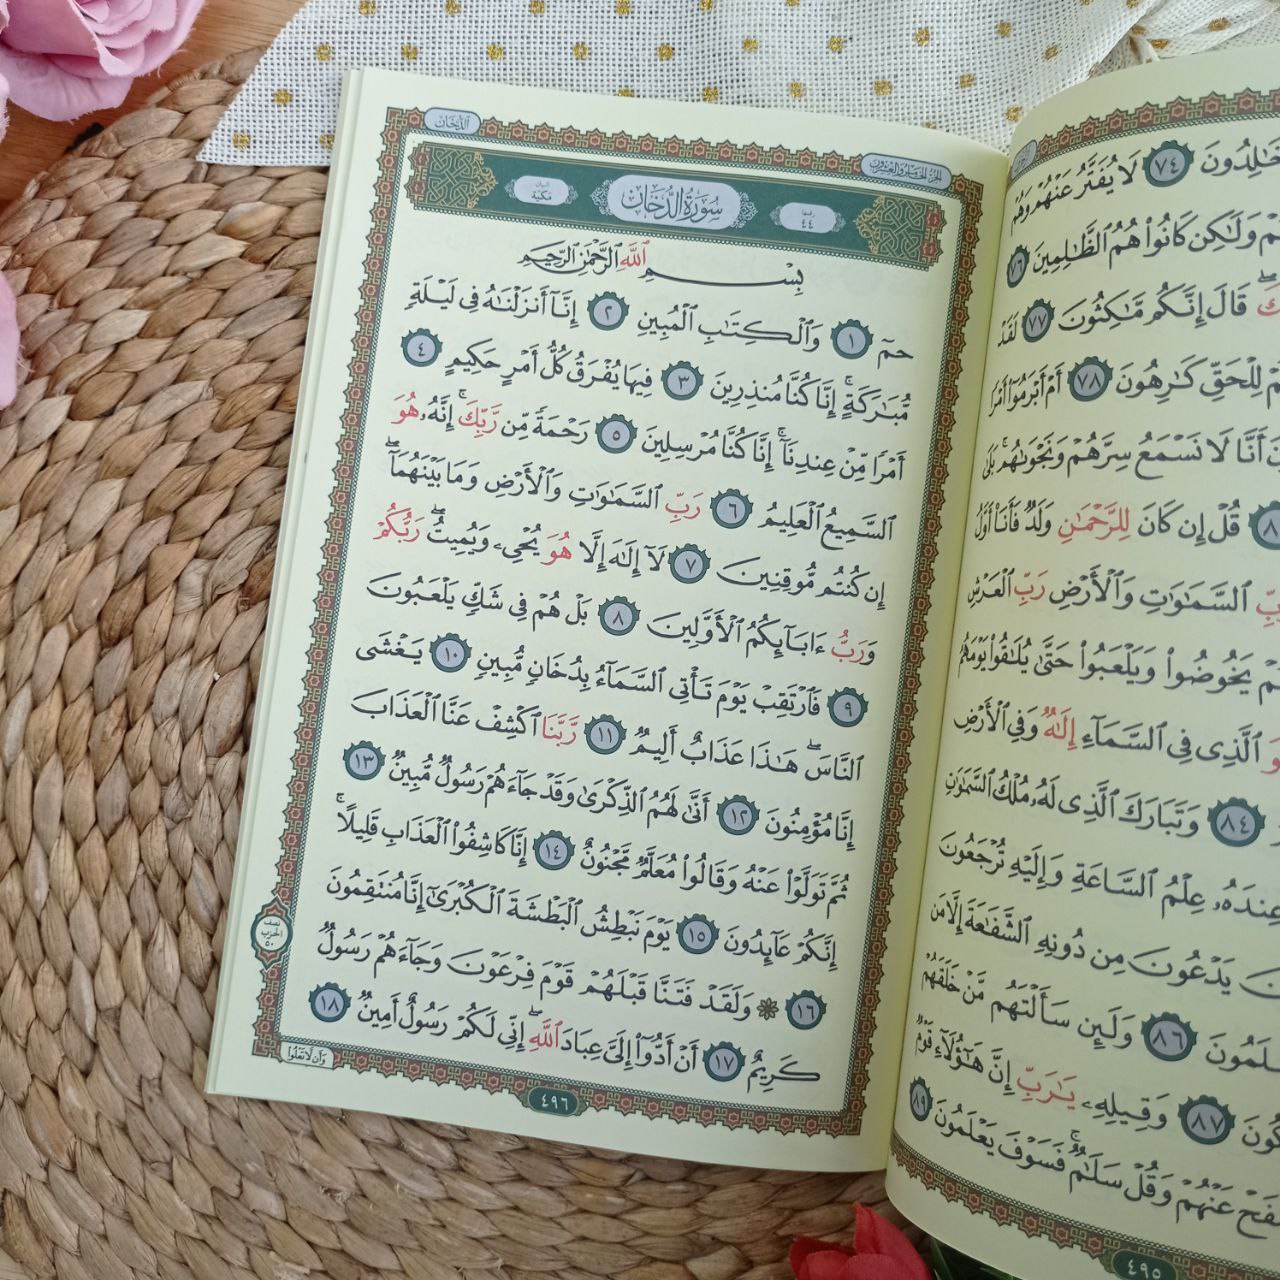 خَٰلِدُونَ ٧٤ لَا يُفَتَّرُ عَنْهُمْ وَهُمْ
وَلَٰكِن كَانُوا۟ هُمُ ٱلظَّٰلِمِينَ ٧٦
قَالَ إِنَّكُم مَّٰكِثُونَ ٧٧ لَقَدْ
لِلْحَقِّ كَٰرِهُونَ ٧٨ أَمْ أَبْرَمُوٓا۟ أَمْرًا
أَنَّا لَا نَسْمَعُ سِرَّهُمْ وَنَجْوَىٰهُم ۚ بَلَىٰ
قُلْ إِن كَانَ لِلرَّحْمَٰنِ وَلَدٌ فَأَنَا۠ أَوَّلُ
ٱلسَّمَٰوَٰتِ وَٱلْأَرْضِ رَبِّ ٱلْعَرْشِ
يَخُوضُوا۟ وَيَلْعَبُوا۟ حَتَّىٰ يُلَٰقُوا۟ يَوْمَهُمُ
ٱلَّذِى فِى ٱلسَّمَآءِ إِلَٰهٌ وَفِى ٱلْأَرْضِ
٨٤ وَتَبَارَكَ ٱلَّذِى لَهُۥ مُلْكُ ٱلسَّمَٰوَٰتِ
عِندَهُۥ عِلْمُ ٱلسَّاعَةِ وَإِلَيْهِ تُرْجَعُونَ
يَدْعُونَ مِن دُونِهِ ٱلشَّفَٰعَةَ إِلَّا مَن
٨٦ وَلَئِن سَأَلْتَهُم مَّنْ خَلَقَهُمْ
٨٧ وَقِيلِهِۦ يَٰرَبِّ إِنَّ هَٰٓؤُلَآءِ قَوْمٌ
عَنْهُمْ وَقُلْ سَلَٰمٌ ۚ فَسَوْفَ يَعْلَمُونَ ٨٩
٤٩٥
الجزء الخامس والعشرون
الدخان
رقمها ٤٤ سُورَةُ الدُّخَانِ مكية
بِسْمِ ٱللَّهِ ٱلرَّحْمَٰنِ ٱلرَّحِيمِ
حمٓ ١ وَٱلْكِتَٰبِ ٱلْمُبِينِ ٢ إِنَّآ أَنزَلْنَٰهُ فِى لَيْلَةٍ
مُّبَٰرَكَةٍ ۚ إِنَّا كُنَّا مُنذِرِينَ ٣ فِيهَا يُفْرَقُ كُلُّ أَمْرٍ حَكِيمٍ ٤
أَمْرًا مِّنْ عِندِنَآ ۚ إِنَّا كُنَّا مُرْسِلِينَ ٥ رَحْمَةً مِّن رَّبِّكَ ۚ إِنَّهُۥ هُوَ
ٱلسَّمِيعُ ٱلْعَلِيمُ ٦ رَبِّ ٱلسَّمَٰوَٰتِ وَٱلْأَرْضِ وَمَا بَيْنَهُمَآ ۖ
إِن كُنتُم مُّوقِنِينَ ٧ لَآ إِلَٰهَ إِلَّا هُوَ يُحْىِۦ وَيُمِيتُ ۖ رَبُّكُمْ
وَرَبُّ ءَابَآئِكُمُ ٱلْأَوَّلِينَ ٨ بَلْ هُمْ فِى شَكٍّ يَلْعَبُونَ
٩ فَٱرْتَقِبْ يَوْمَ تَأْتِى ٱلسَّمَآءُ بِدُخَانٍ مُّبِينٍ ١٠ يَغْشَى
ٱلنَّاسَ ۖ هَٰذَا عَذَابٌ أَلِيمٌ ١١ رَّبَّنَا ٱكْشِفْ عَنَّا ٱلْعَذَابَ
إِنَّا مُؤْمِنُونَ ١٢ أَنَّىٰ لَهُمُ ٱلذِّكْرَىٰ وَقَدْ جَآءَهُمْ رَسُولٌ مُّبِينٌ ١٣
ثُمَّ تَوَلَّوْا۟ عَنْهُ وَقَالُوا۟ مُعَلَّمٌ مَّجْنُونٌ ١٤ إِنَّا كَاشِفُوا۟ ٱلْعَذَابِ قَلِيلًا ۚ
إِنَّكُمْ عَآئِدُونَ ١٥ يَوْمَ نَبْطِشُ ٱلْبَطْشَةَ ٱلْكُبْرَىٰٓ إِنَّا مُنتَقِمُونَ
١٦ ۞ وَلَقَدْ فَتَنَّا قَبْلَهُمْ قَوْمَ فِرْعَوْنَ وَجَآءَهُمْ رَسُولٌ
كَرِيمٌ ١٧ أَنْ أَدُّوٓا۟ إِلَىَّ عِبَادَ ٱللَّهِ ۖ إِنِّى لَكُمْ رَسُولٌ أَمِينٌ ١٨
نصف
الحزب
٥٠
وَأَن لَّا تَعْلُوا۟
٤٩٦